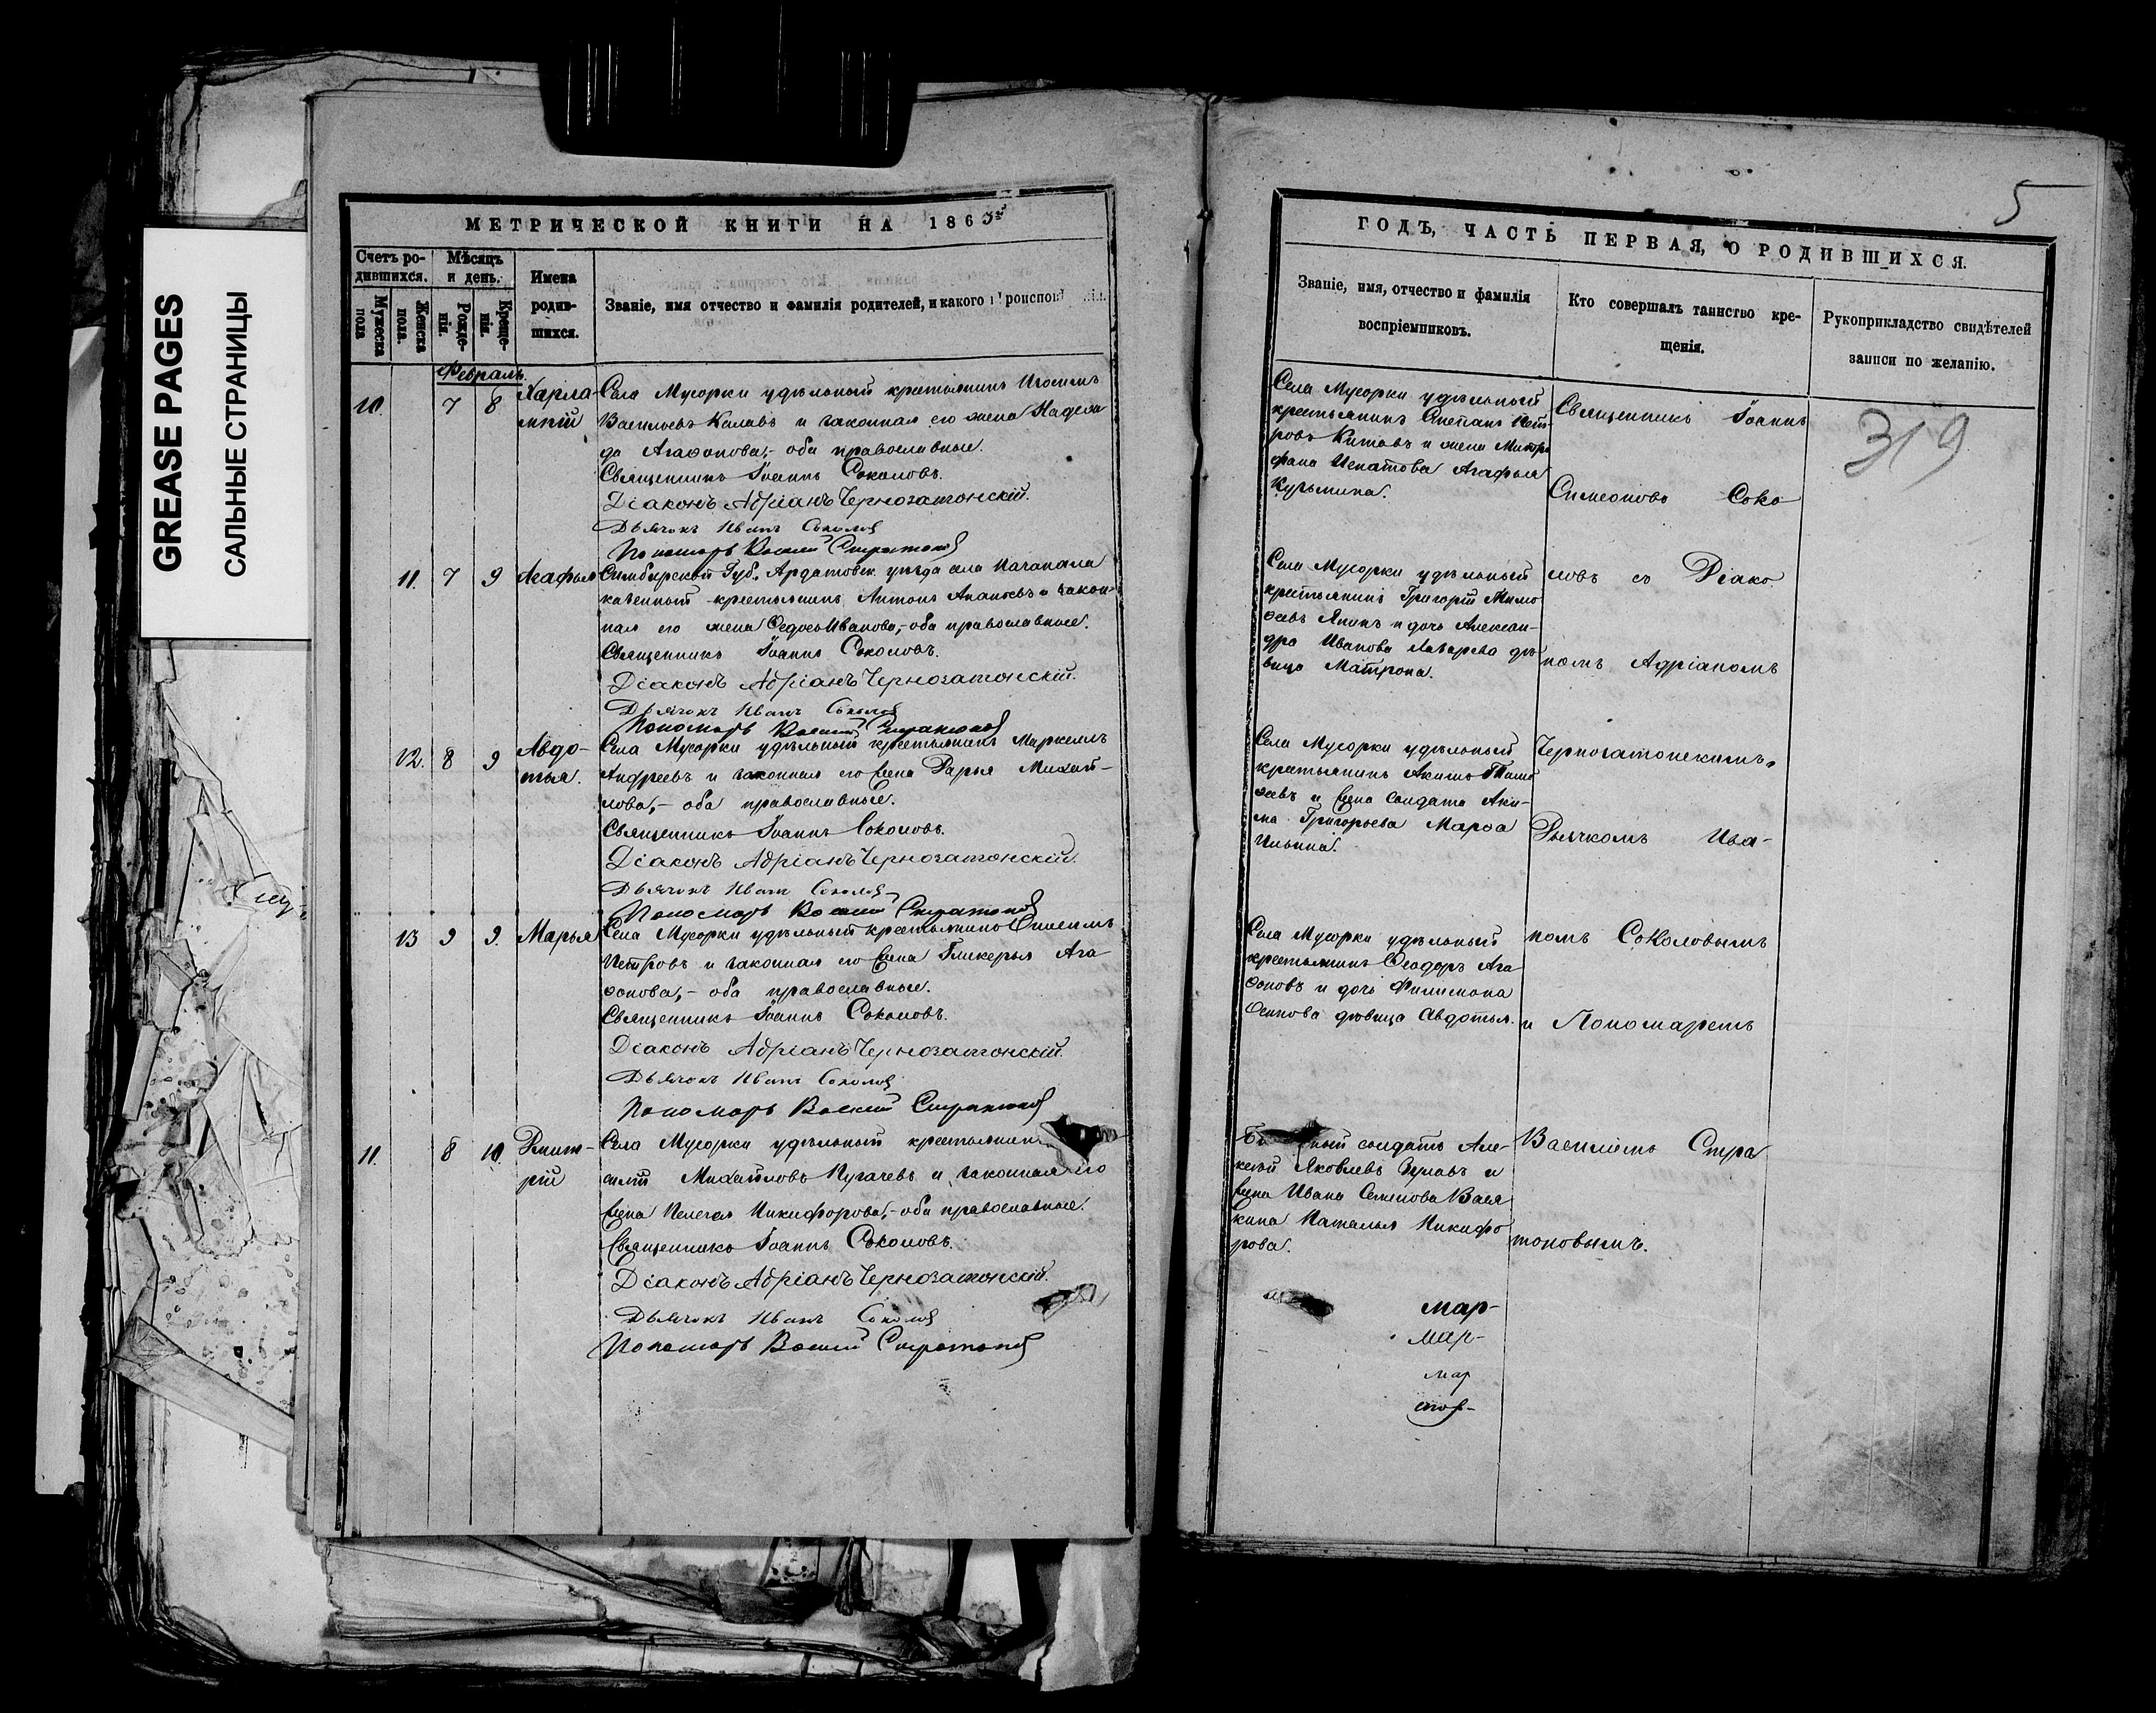 GREASE PAGES
САЛЬНЫЕ СТРАНИЦЫ
МЕТРИЧЕСКОЙ КНИГИ НА 1863
Счетъ ро-
дившихся.
Мѣсяцъ
и день.
Имена
родив-
шихся.
Званіе, имя отчество и фамилія родителей, и какого
Мужеска
пола
Женска
пола.
Рожде-
нія.
Креще-
нія.
Февраль
10. 7 8 Харла-
мпій
Села Мусорки удѣльный крестьянинъ
Васильевъ и законная его жена Надеж
да Агаѳонова,- оба православные.
Священникъ Іоаннъ Соколовъ.
Діаконъ Адріанъ Чернозатонскій.
Дьячокъ Иванъ Соколов
Пономарь Василій Стратонов
11. 7 9 Агафья
Симбирской Губ. Ардатовск. уѣзда села
крестьянинъ Антонъ и закон-
ная его жена Ѳедосья Иванова,- оба православные.
Священникъ Іоаннъ Соколовъ.
Діаконъ Адріанъ Чернозатонскій.
Дьячокъ Иванъ Соколов
Пономарь Василій Стратонов
12. 8 9 Авдо-
тья.
Села Мусорки удѣльный крестьянинъ Маркеллъ
Андреевъ и законная его жена Дарья Михай-
лова,- оба православные.
Священникъ Іоаннъ Соколовъ.
Діаконъ Адріанъ Чернозатонскій.
Дьячокъ Иванъ Соколов
Пономарь Василій Стратонов
13 9 9. Марья
Села Мусорки удѣльный крестьянинъ
Петровъ и законная его жена Гликерья Ага
ѳонова,- оба православные.
Священникъ Іоаннъ Соколовъ.
Діаконъ Адріанъ Чернозатонскій.
Дьячокъ Иванъ Соколов
Пономарь Василій Стратонов
11. 8 10. Дмит-
рій
Села Мусорки удѣльный крестьянинъ
Михайловъ Пугачевъ и законная его
жена Пелагея Никифорова,- оба православные.
Священникъ Іоаннъ Соколовъ.
Діаконъ Адріанъ Чернозатонскій.
Дьячокъ Иванъ Соколов
Пономарь Василій Стратонов
5
ГОДЪ, ЧАСТЬ ПЕРВАЯ, О РОДИВШИХСЯ.
Званіе, имя, отчество и фамилія
воспріемниковъ.
Кто совершалъ таинство кре-
щенія.
Рукоприкладство свидѣтелей
записи по желанію.
319
Села Мусорки удѣльный
крестьянинъ Степанъ Пет-
ровъ Китовъ и жена Митро
фана Игнатова Агафья
Кузьмина.
Священникъ Іоаннъ
Симеоновъ Соко
Села Мусорки удѣльный
крестьянинъ Григорій
и дочь Алексан-
дра Иванова Лазарева дѣ-
вица Матрона.
ловъ съ Діако
номъ Адріаномъ
Села Мусорки удѣльный
крестьянинъ Акимъ Тимо
ѳеевъ и жена солдата Аки-
ма Григорьева Марѳа
Ильина.
Чернозатонскимъ,
Дьячкомъ Ива-
Села Мусорки удѣльный
крестьянинъ Ѳеодоръ Ага
ѳоновъ и дочь Филимона
Осипова дѣвица Авдотья.
номъ Соколовымъ
и Пономаремъ
солдатъ Але-
ксѣй Яковлевъ и
жена Ивана Семенова
кина Наталья Никифо
рова.
Василіемъ Стра
тоновымъ.
мар-
мар-
мар